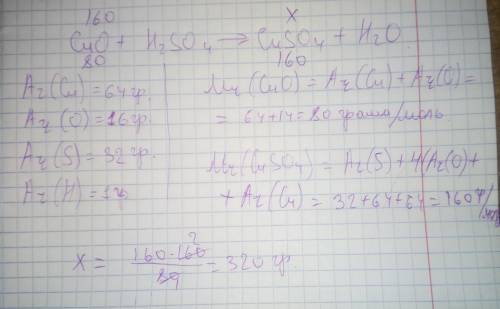 160 x
CuO + H2SO4 → CuSO4 + H2O.
80 160
Ar(Cu) = 64гр.
Ar(O) = 16гр.
Ar(S) = 32гр.
Ar(H) = 1гр
Mr(CuO) = Ar(Cu) + Ar(O) =
= 64+14 = 80 грамм/моль
Mr(CuSO4) = Ar(S) + 4(Ar(O) +
+ Ar(Cu) = 32+64+64 = 160 г/моль
x = 160·160 2 / 80 = 320 гр.